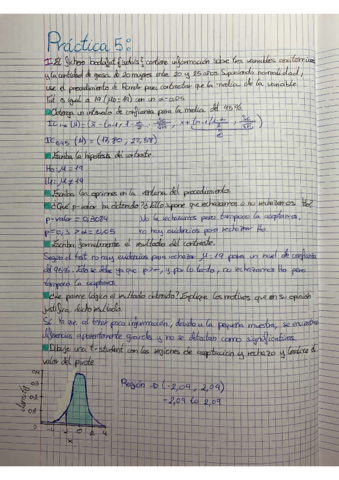 Práctica 5:
1. El fichero bodyfat.{rda contiene información sobre las variables anatómicas
y la cantidad de grasa de 20 mujeres entre 20 y 25 años. Suponiendo normalidad,
use el procedimiento de Rcmdr para contrastar que la media de la variable
es igual a 19 (μ0=19) con un α=0,05
Obtenga un intervalo de confianza para la media del 95%
IC
IC0,95 (μ) = (17,80 , 27,58)
Escriba la hipótesis del contraste
H0: μ = 19
H1: μ ≠ 19
Escriba las opciones en la ventana del procedimiento.
¿Qué p-valor ha obtenido? ¿Ello supone que rechazamos o no rechazamos H0?
p-valor = No la rechazamos pero tampoco la aceptamos,
p= 0,3 > α = 0,05 no hay evidencias para rechazar H0
Escriba formalmente el resultado del contraste.
Según el test no hay evidencias para rechazar μ = 19 para un nivel de confianza
del 95%. Esto se debe ya que p>α, y por lo tanto, no rechazamos H0 pero
tampoco la aceptamos.
¿Le parece lógico el resultado obtenido? Explique los motivos que en su opinión
justifica dicho resultado.
Sí. Ya que al tener poca información, debido a la pequeña muestra, se encuentran
diferencias aparentemente grandes y no se detectan como significativas.
Dibuje una t-student con las regiones de aceptación y rechazo y localice el
valor del pivote.
Región ⇒ (-2,09 , 2,09)
-2,09 to 2,09
0.4
0.2
0
density
-4 -2 0 2 4
x